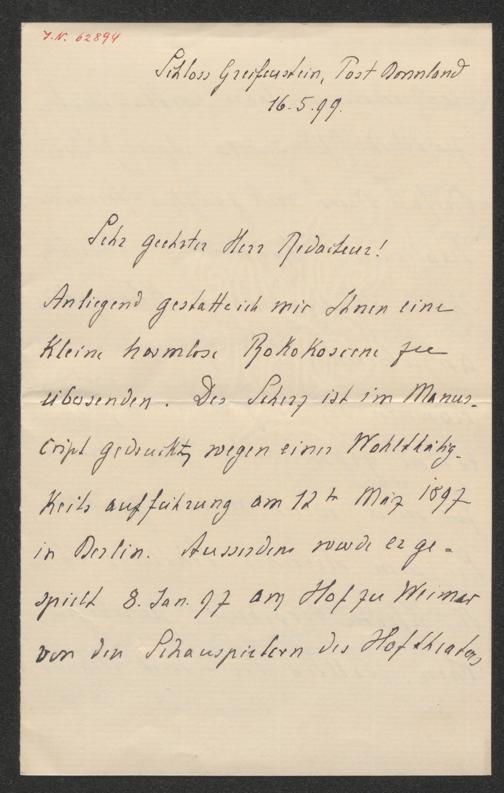 J.N. 62894
Schloss Greifenstein, Post Bonnland
16.5.99.
Sehr geehrter Herr Redacteur!
Anliegend gestatte ich mir Ihnen eine
kleine harmlose Rokokoscene zu
übersenden. Der Scherz ist im Manus-
cript gedruckt, wegen einer Wohlthätig-
keits aufführung am 12ten März 1897
in Berlin. Ausserdem wurde er ge-
spielt 8. Jan. 97 am Hof zu Weimar
von den Schauspielern des Hoftheaters